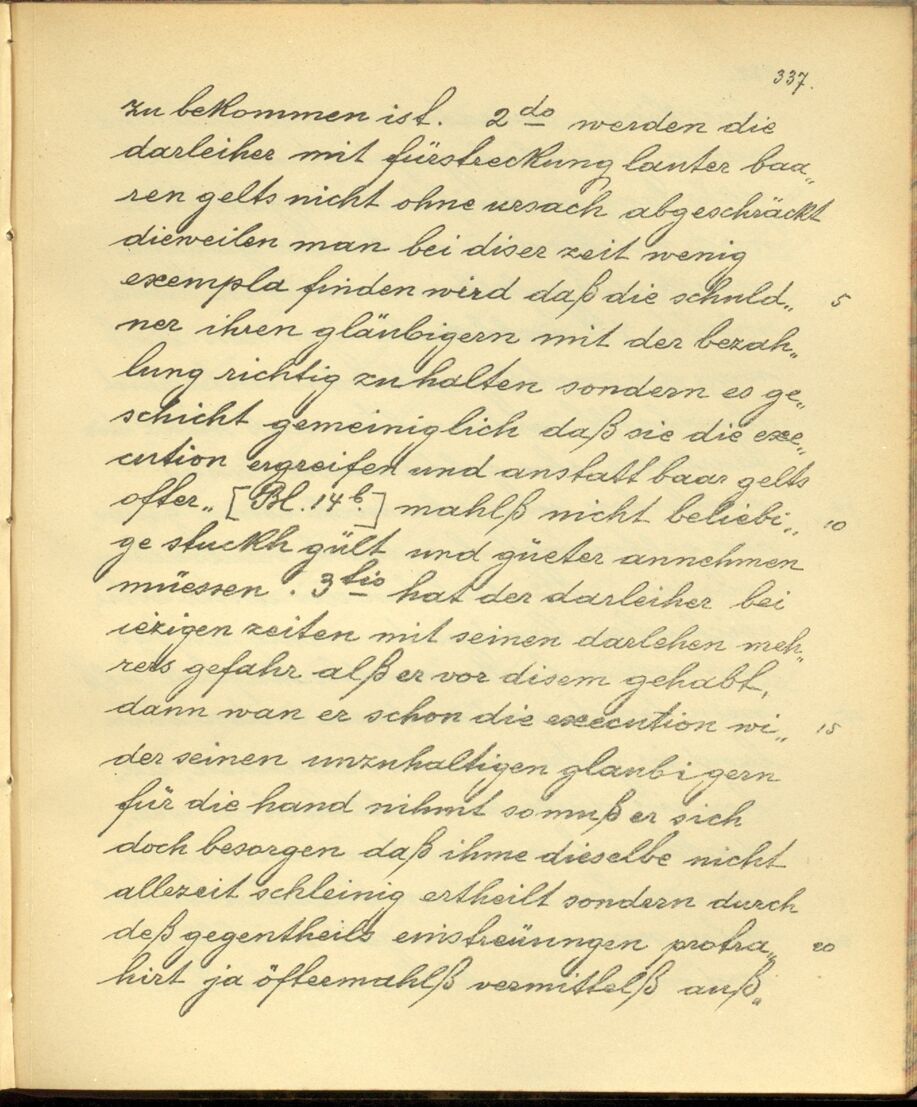 337.
zu bekommen ist. 2do werden die
darleiher mit fürstreckung lauter baa„
ren gelts nicht ohne ursach abgeschräckt
dieweilen man bei diser zeit wenig
exempla finden wird daß die schuld„ 5
ner ihren gläubigern mit der bezah„
lung richtig zuhalten sondern es ge„
schicht gemeiniglich daß sie die exe„
cution ergreifen und anstatt baar gelts
offter„ [Bl. 14b.] mahlß nicht beliebi„ 10
ge stuckh gült und güeter annehmen
müessen. 3tio hat der darleiher bei
iezigen zeiten mit seinen darlehen meh„
rers gefahr alß er vor disem gehabt,
dann wan er schon die execution wi„ 15
der seinen unzuhaltigen glaubigern
für die hand nihmt so muß er sich
doch besorgen daß ihme dieselbe nicht
allezeit schleinig ertheilt sondern durch
deß gegentheils einstreüungen protra„ 20
hirt ja öftermahlß vermittelß auß„